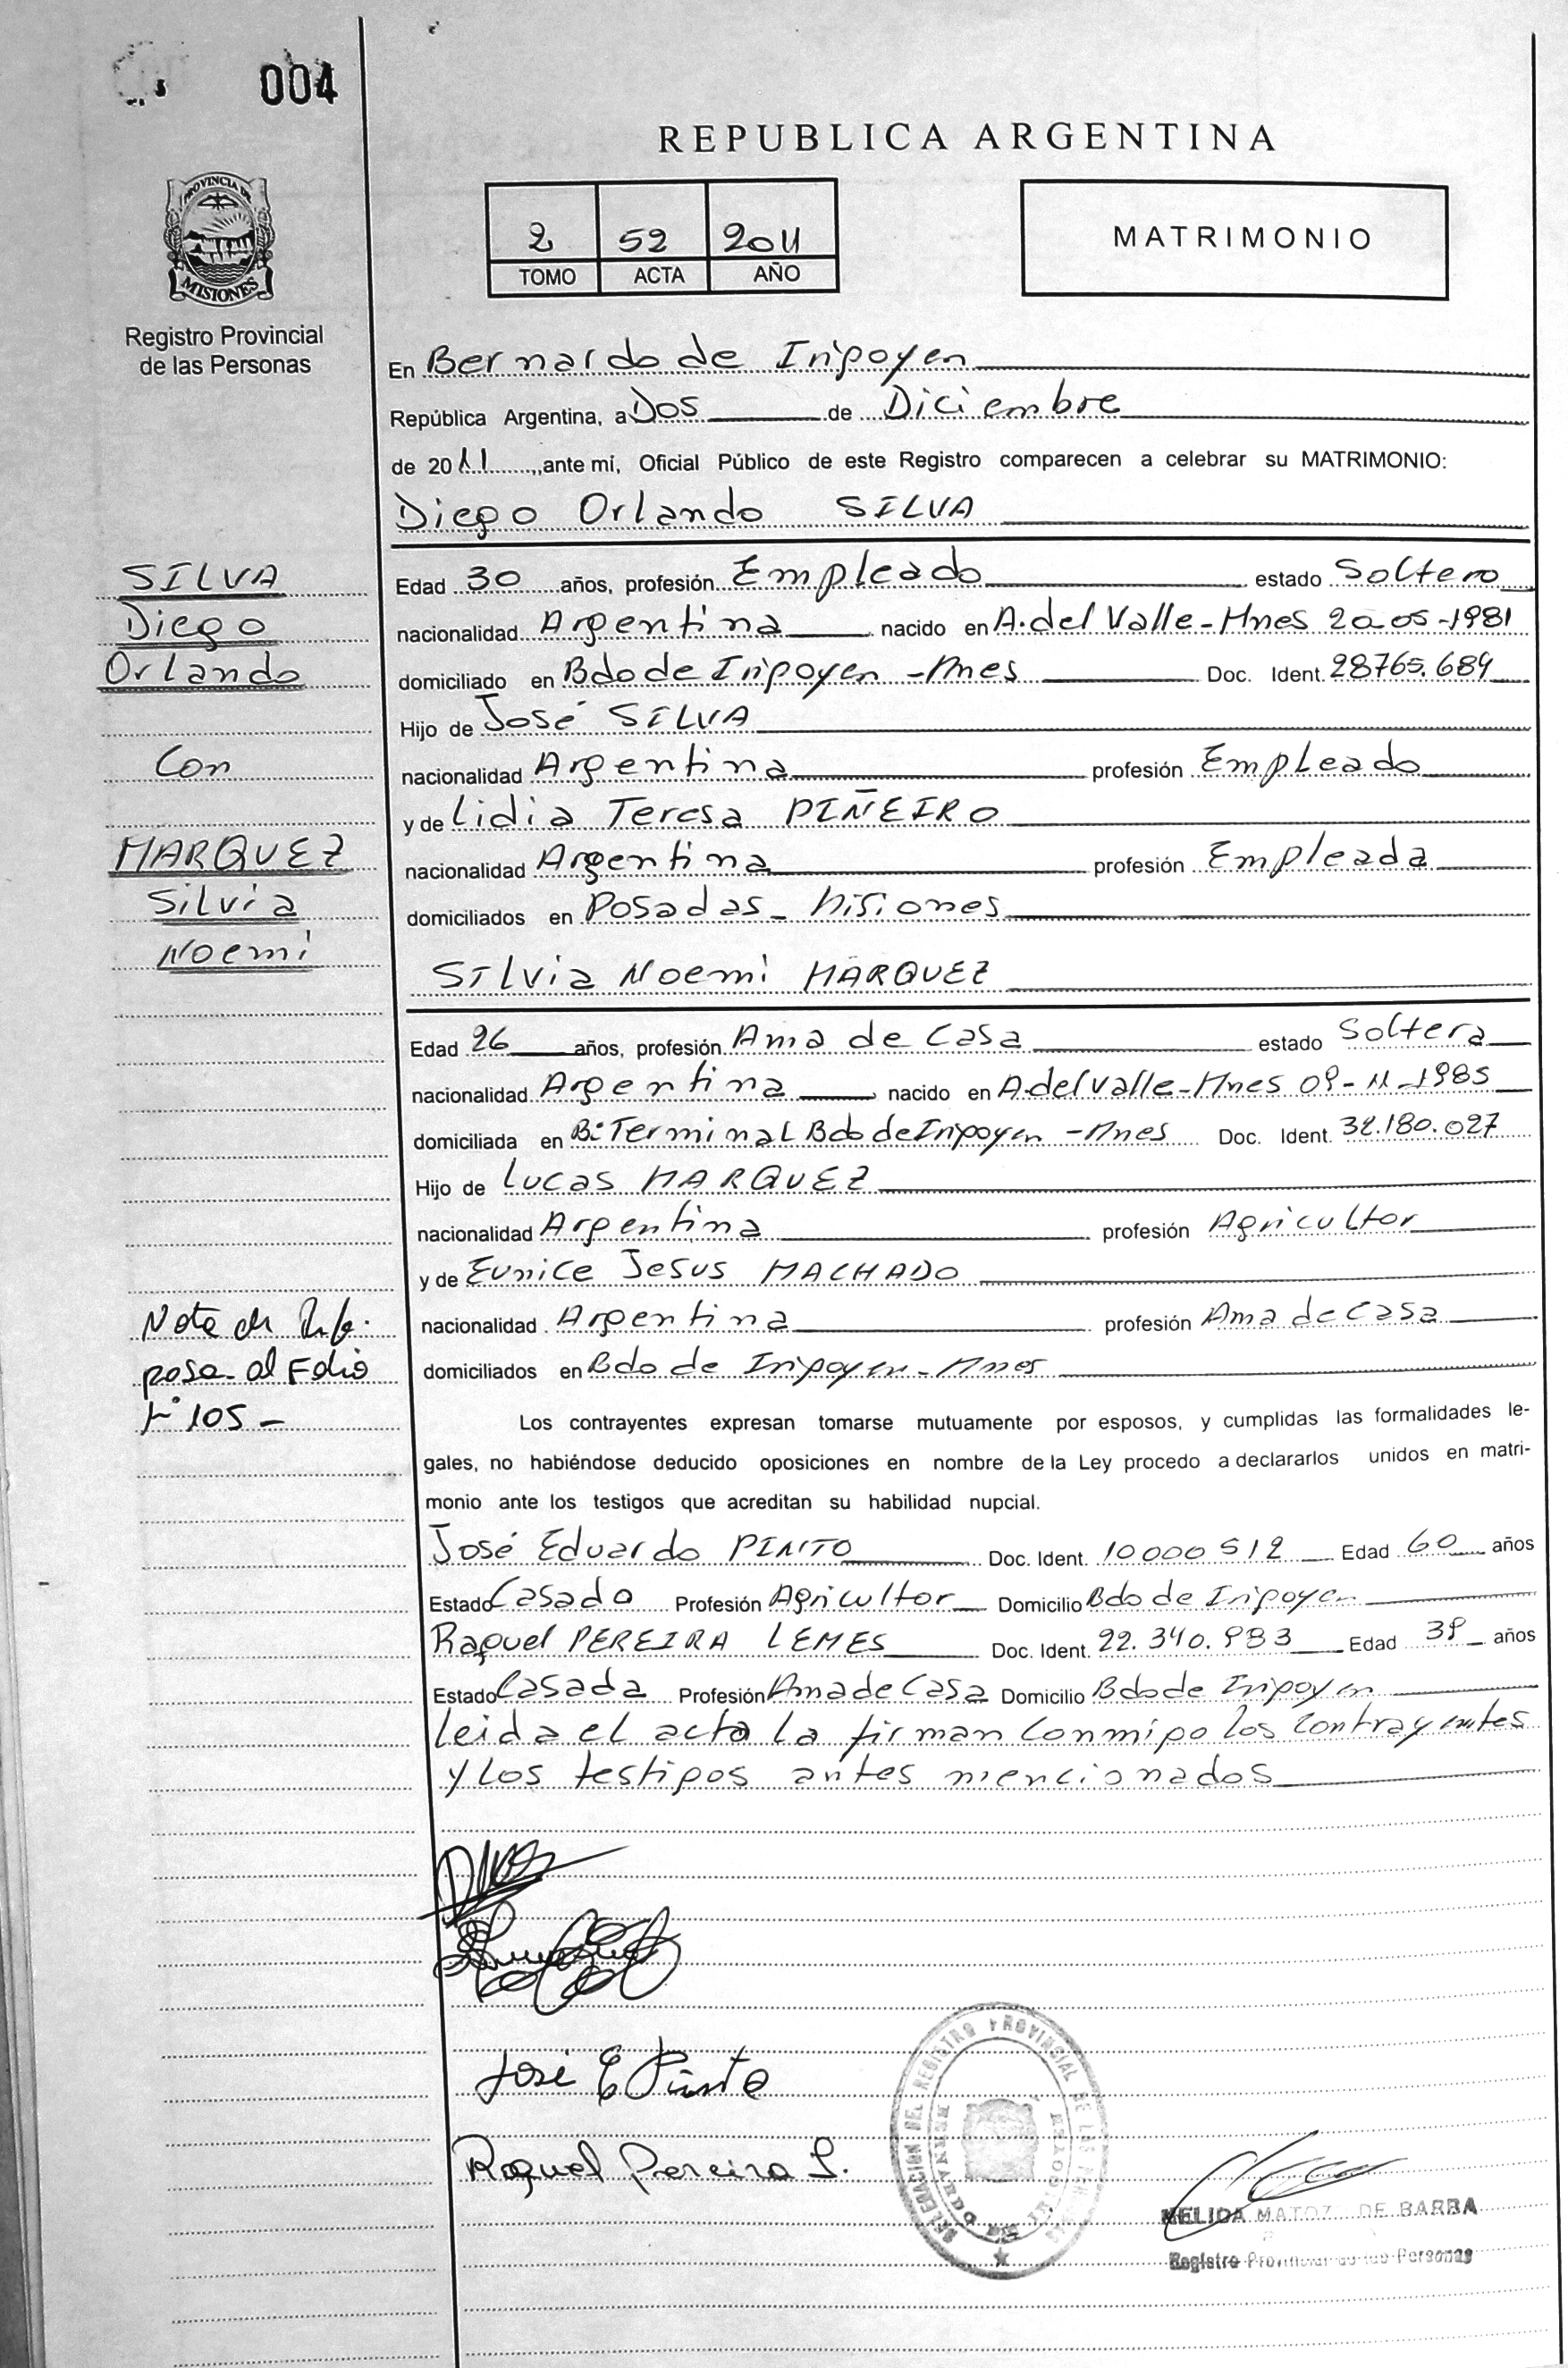 004
REPUBLICA ARGENTINA
PROVINCIA DE
MISIONES
Registro Provincial
de las Personas
2 52 2011
TOMO ACTA AÑO
MATRIMONIO
En Bernardo de Irigoyen
República Argentina, a Dos de Diciembre
de 2011, ante mí, Oficial Público de este Registro comparecen a celebrar su MATRIMONIO:
Diego Orlando SILVA
SILVA
Diego
Orlando
Con
MARQUEZ
Silvia
Noemi
Edad 30 años, profesión Empleado estado Soltero
nacionalidad Argentina nacido en A. del Valle - Mnes 20-05-1981
domiciliado en Bdo de Irigoyen - Mnes Doc. Ident. 28765.689
Hijo de José SILVA
nacionalidad Argentina profesión Empleado
y de Lidia Teresa PIÑEIRO
nacionalidad Argentina profesión Empleada
domiciliados en Posadas - Misiones
Silvia Noemi MARQUEZ
Edad 26 años, profesión Ama de Casa estado Soltera
nacionalidad Argentina nacido en A. del Valle - Mnes 09-11-1985
domiciliada en B° Terminal Bdo de Irigoyen - Mnes Doc. Ident. 32.180.027
Hijo de Lucas MARQUEZ
nacionalidad Argentina profesión Agricultor
y de Eunice Jesus MACHADO
nacionalidad Argentina profesión Ama de Casa
domiciliados en Bdo de Irigoyen - Mnes
Nota de
pasa al Folio
N° 105 -
Los contrayentes expresan tomarse mutuamente por esposos, y cumplidas las formalidades le-
gales, no habiéndose deducido oposiciones en nombre de la Ley procedo a declararlos unidos en matri-
monio ante los testigos que acreditan su habilidad nupcial.
José Eduardo PINTO Doc. Ident. 10000512 Edad 60 años
Estado Casado Profesión Agricultor Domicilio Bdo de Irigoyen
Raquel PEREIRA LEMES Doc. Ident. 22.340.983 Edad 39 años
Estado Casada Profesión Ama de Casa Domicilio Bdo de Irigoyen
leida el acta la firman Conmigo los Contrayentes
y los testigos antes mencionados
José E Pinto
Raquel Pereira L.
DELEGACION DEL REGISTRO PROVINCIAL DE LAS PERSONAS
BERNARDO DE IRIGOYEN
NELIDA MATOZO DE BARBA
Registro Provincial de las Personas